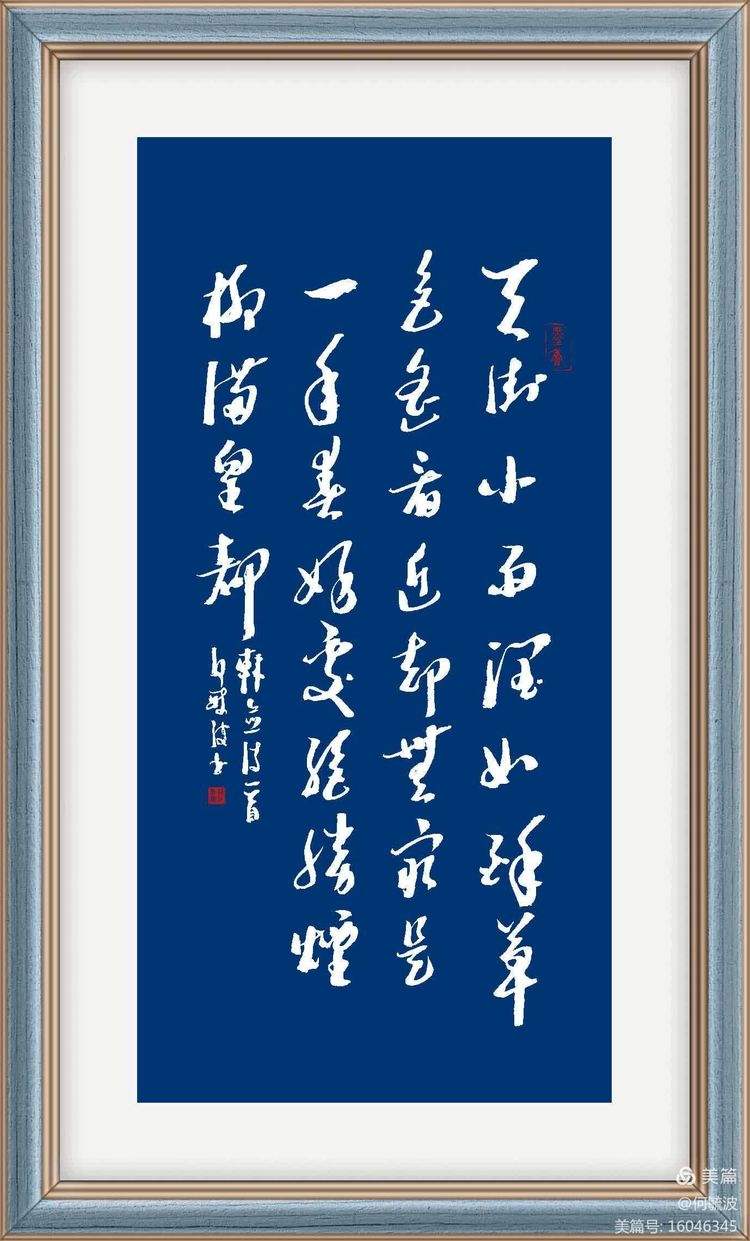 天街小雨潤如酥草
色遥看近却無最是
一年春好處絕勝煙
柳滿皇都
韓愈詩一首
何毓波书
美篇
@何毓波
美篇号: 16046345